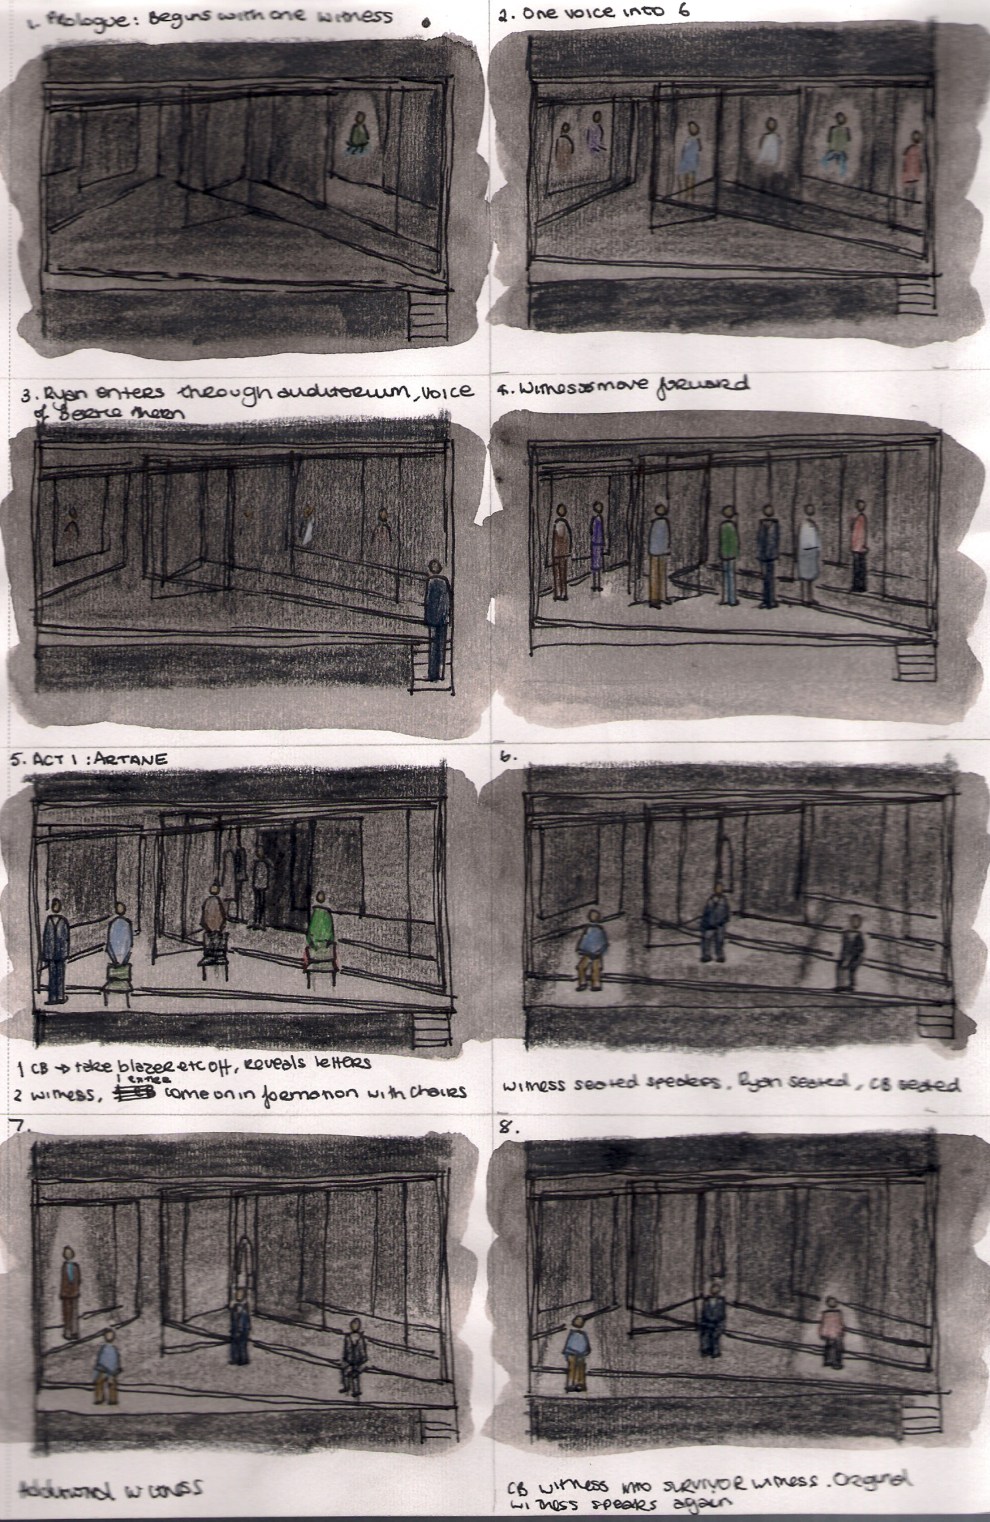 1. Prologue: Begins with one witness
2. One voice into 6
3. Ryan enters through auditorium, voice
of
4. Witnesses move forward
5. ACT 1 : ARTANE
6.
1 CB → take blazer etc off, reveals letters
2 witness, 1 enters come on in formation with chairs
witness seated speakers, Ryan seated, CB seated
7.
8.
Additional witness
CB witness into SURVIVOR witness. Original
witness speaks again